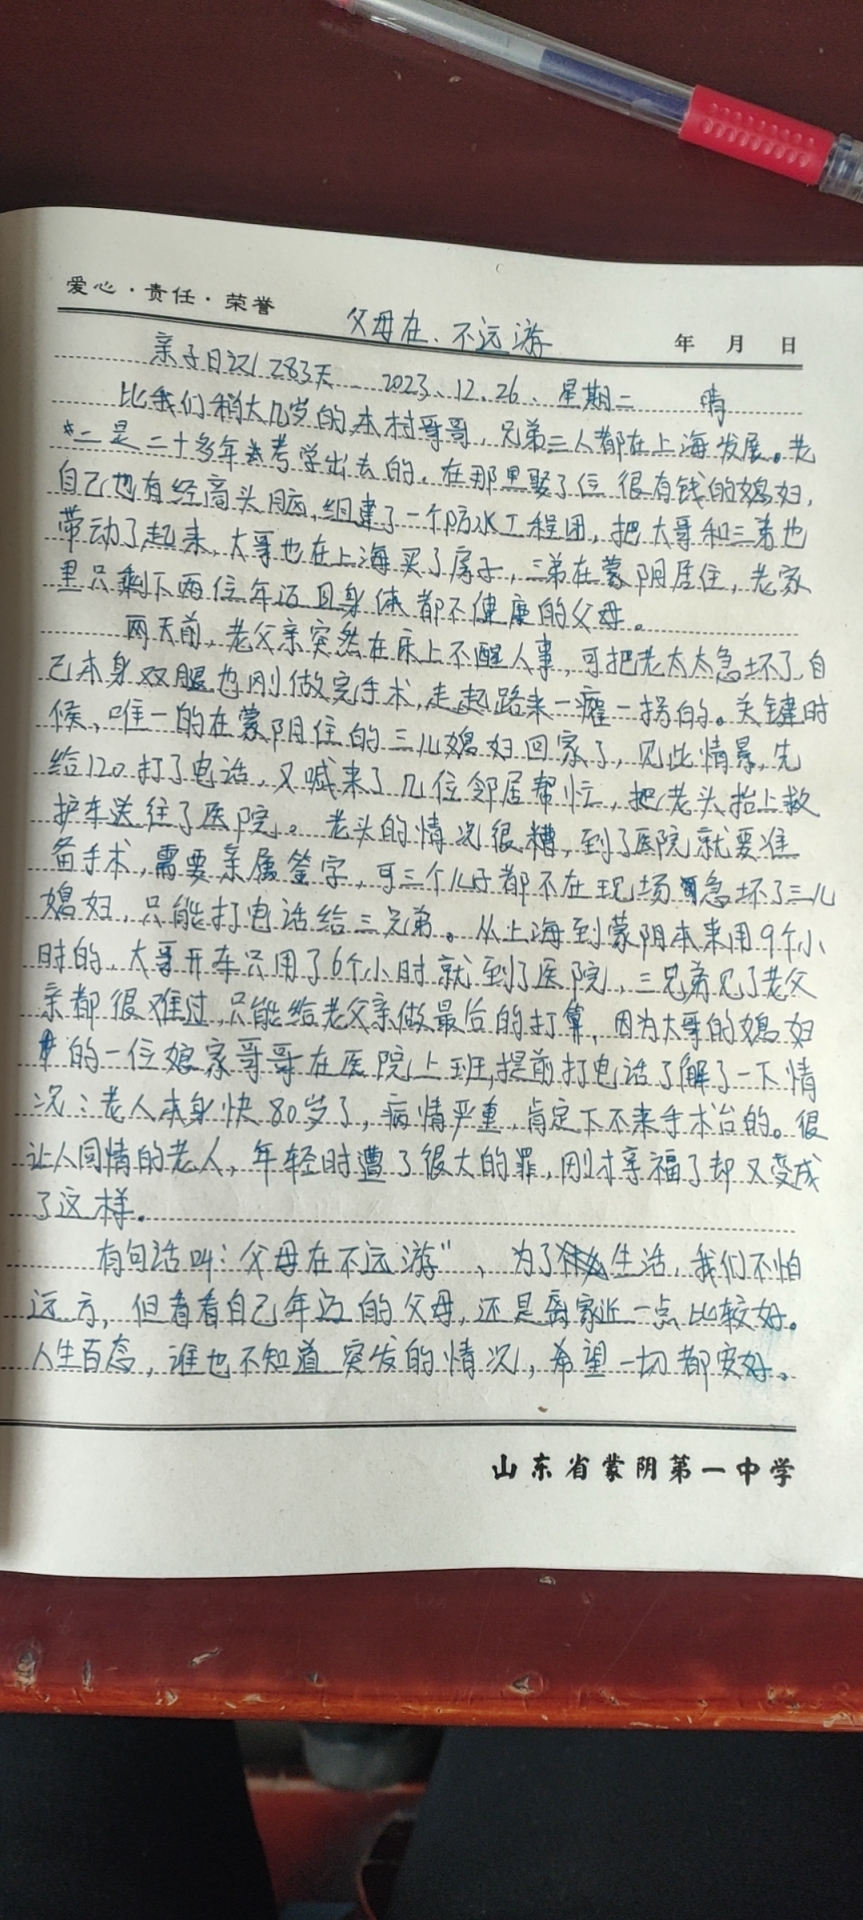 爱心·责任·荣誉
父母在、不远游
年 月 日
亲子日记283天 2023.12.26. 星期二 晴
比我们稍大几岁的本村哥哥,兄弟三人都在上海发展。老
二是二十多年考学出去的,在那里娶了位很有钱的媳妇,
自己也有经商头脑,组建了一个防水工程团,把大哥和三弟也
带动了起来,大哥也在上海买了房子,三弟在蒙阴居住,老家
里只剩下两位年迈且身体都不健康的父母。
两天前,老父亲突然在床上不醒人事,可把老太太急坏了,自
己本身双腿也刚做完手术,走起路来一瘸一拐的。关键时
候,唯一的在蒙阴住的三儿媳妇回家了,见此情景,先
给120打了电话,又喊来了几位邻居帮忙,把老头抬上救
护车送往了医院。老头的情况很糟,到了医院就要准
备手术,需要亲属签字,可三个儿子都不在现场,急坏了三儿
媳妇,只能打电话给三兄弟。从上海到蒙阴本来用9个小
时的,大哥开车只用了6个小时就到了医院,三兄弟见了老父
亲都很难过,只能给老父亲做最后的打算,因为大哥的媳妇
的一位娘家哥哥在医院上班,提前打电话了解了一下情
况:老人本身快80岁了,病情严重,肯定下不来手术台的。很
让人同情的老人,年轻时遭了很大的罪,刚才享福了却又变成
了这样。
有句话叫:父母在不远游",为了生活,我们不怕
远方,但看看自己年迈的父母,还是离家近一点比较好。
人生百态,谁也不知道突发的情况,希望一切都安好。
山东省蒙阴第一中学